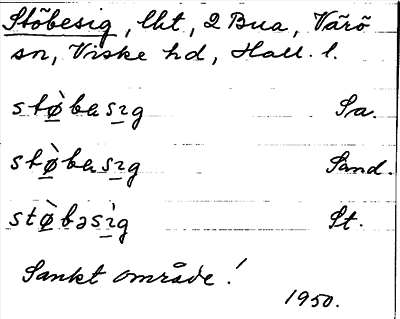 Stöbesig, lht, 2 Bua, Värö
sn, Viske hd, Hall. l.
stø̀basıg Sa.
stø̀basıg Sand.
stø̀bəsìg St.
Sankt område!
1950.